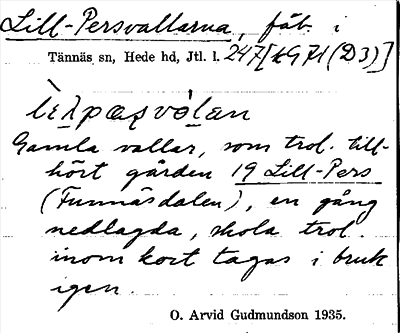 Lill-Persvallarna, fäb. i
Tännäs sn, Hede hd, Jtl. l. 247[kG 71 (D3)]
Gamla vallar, som trol. till-
hört gården 19 Lill-Pers
(Funnäsdalen), en gång
nedlagda, skola trol.
inom kort tagas i bruk
igen.
O. Arvid Gudmundson 1935.